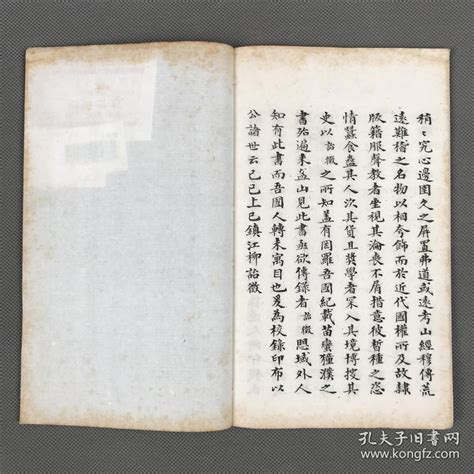 稍〻究心邊圉久之屏置弗道或遠考山經穆傳荒
遠難稽之名物以相夸飾而於近代國權所及故隸
版籍服聲教者坐視其淪喪不屑措意彼晳種之恣
情蠶食其人次其貨且獎學者罙入其境博搜其
史以詒徵之所知蓋有罔羅吾國紀載苗蠻獞濮之
書殆遍來盋山見此書亟欲傳錄者詒徵愳域外人
知有此書而吾國人轉未寓目也爰為校錄印布以
公諸世云己巳上巳鎮江柳詒徵
孔夫子旧书网
www.kongfz.com